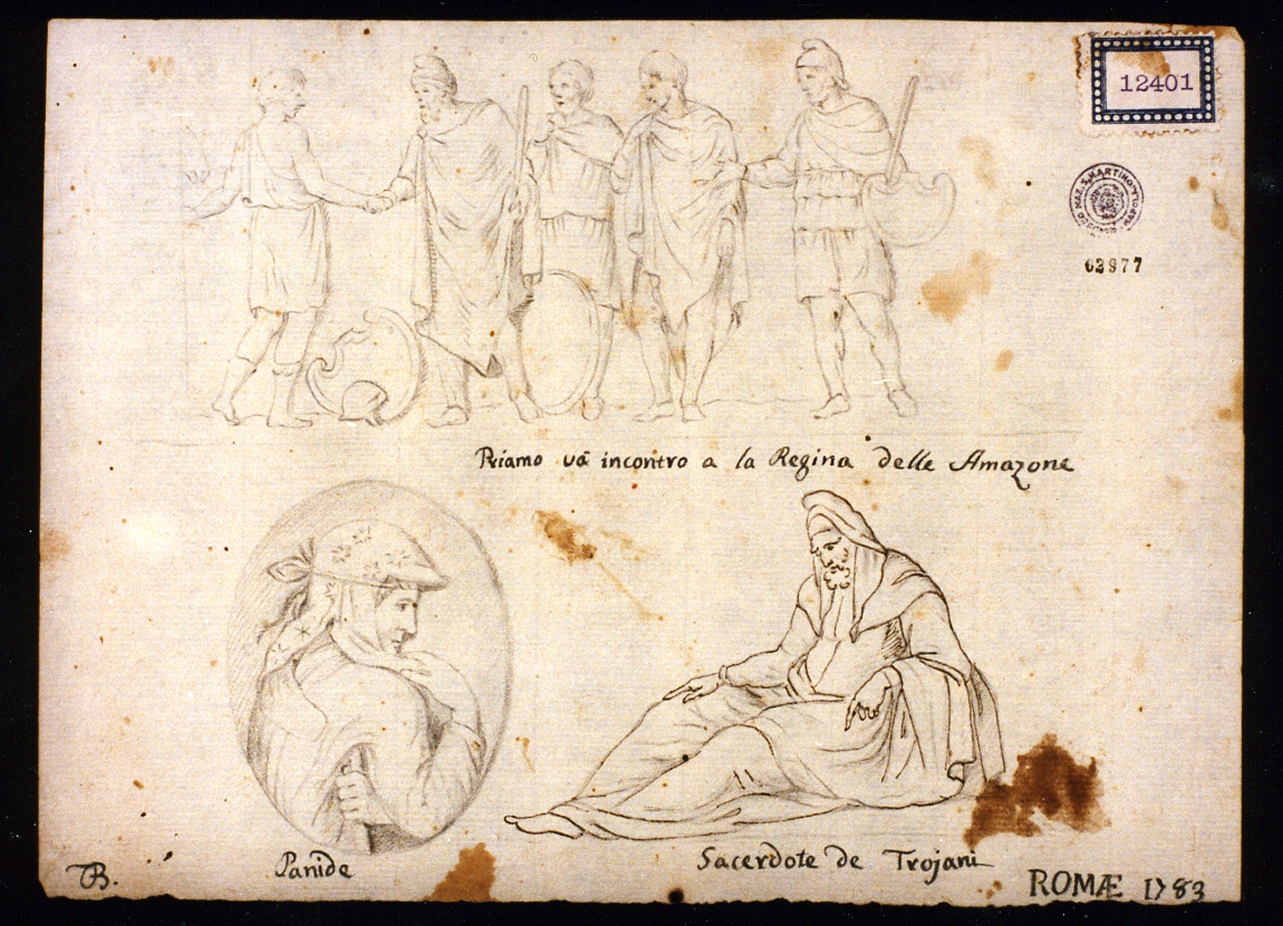 12401
02977
Priamo vá incontro a la Regina delle Amazone
Panide
Sacerdote de Trojani
TB.
ROMÆ 1783